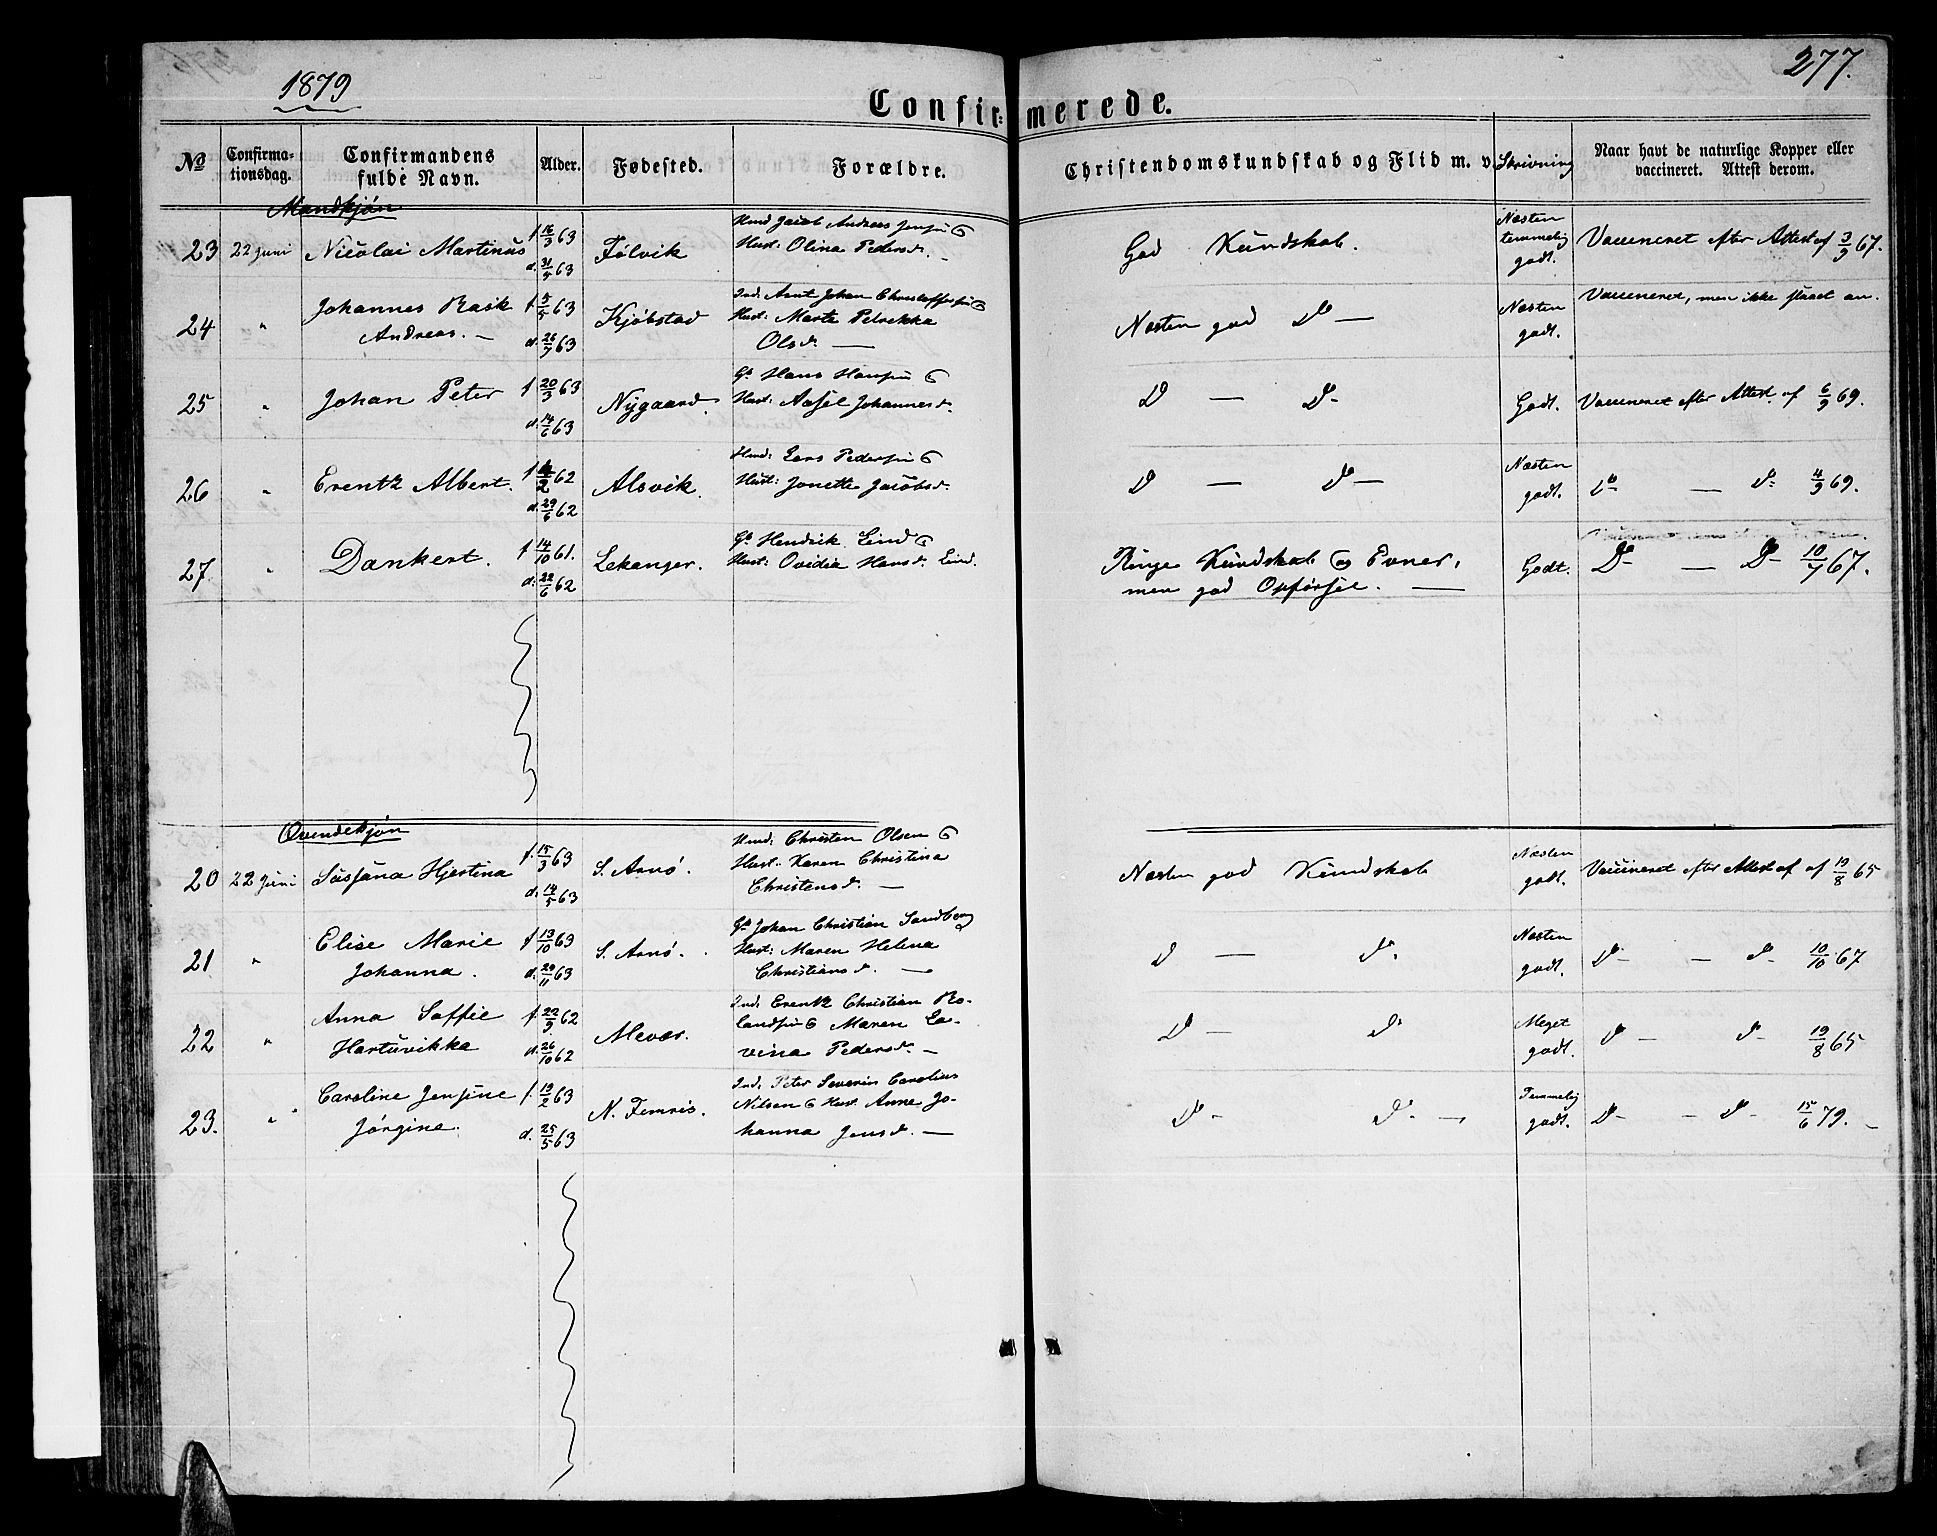 1879
277.
Confirmerede.
No
Confirmationsdag.
Confirmandens fulde Navn.
Alder.
Fødested.
Forældre.
Christendomskundskab og Flid m. v.
Skrivning
Naar havt de naturlige Kopper eller vaccineret. Attest derom.
Mandkjøn
23 22 Juni Nicolai Martinus f 16/3 63 d. 31/5 63 Følvik
Hmd Jacob Andreas Jensen &
Hust: Olina Pedersd.
God Kundskab. Næsten temmelig godt. Vaccineret efter Attest af 3/9 67.
24 " Johannes Rask Andreas. — f 5/5 63 d. 26/7 63 Kjøbstad
Ind: Arnt Johan Christoffersen &
Hust: Marta Petrikka
Olsd. —
Næsten god Do — Næsten godt. Vaccineret, men ikke slaaet an.
25 " Johan Peter f 20/3 63 d. 14/6 63 Nygaard
Gb Hans Hansen &
Hust: Aasel Johannesd.
Do — Do Godt. Vaccineret efter Attest af 6/9 69.
26 " Erentz Albert. f 62 d. 29/6 62 Alsvik.
Hmd: Lars Pedersen &
Hust: Jonette Jacobsd.
Do — Do — Næsten godt. Do — Do 4/9 69.
27 " Dankert. f 14/10 61. d. 22/6 62 Lekanger.
Gb Hendrik Lind &
Hust: Ovidia Hansd. Lind.
Ringe Kundskab og Evner, men god Opførsel. — Godt. Do — Do 10/7 67.
Qvindekjøn
20 22 Juni Susjana Hjertina f. 15/3 63 d. 14/5 63 S. Arnø.
Hmd: Christen Olsen &
Hust. Karen Christina
Christensd. —
Næsten god Kundskab Næsten godt. Vaccineret efter Attest af af 19/8 65
21 " Elise Marie Johanna. f 13/10 63 d. 29/11 63 S. Arnø.
Gb Johan Christian Sandberg &
Hust: Maren Helena
Christiansd. —
Do — Do Næsten godt. Do — Do 10/10 67
22 " Anna Soffie Hartuvikka f. 22/9 62 d. 26/10 62 Mevær.
Ind: Erentz Christian Ro-
landsen & Maren La-
vina Pedersd. —
Do — Do Meget godt. Do — Do 19/8 65
23. " Caroline Jensine Jørgine. f. 19/2 63 d. 25/5 63 N. Femris.
Ind: Peter Severin Carolius
Nilsen & Hust. Anne Jo-
hanna Jensd. —
Do — Do — Temmelig godt. Do — Do 15/6 79. —